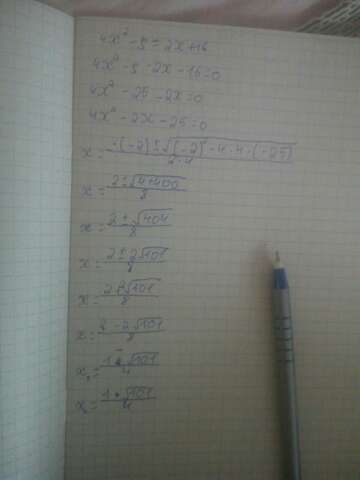 4x² - 9 = 2x + 16
4x² - 9 - 2x - 16 = 0
4x² - 25 - 2x = 0
4x² - 2x - 25 = 0
x = -(-2) ± √(-2)² - 4 · 4 · (-25) / 2 · 4
x = 2 ± √4 + 400 / 8
x = 2 ± √404 / 8
x = 2 ± 2√101 / 8
x = 2 + 2√101 / 8
x = 2 - 2√101 / 8
x₁ = 1 - √101 / 4
x₂ = 1 + √101 / 4